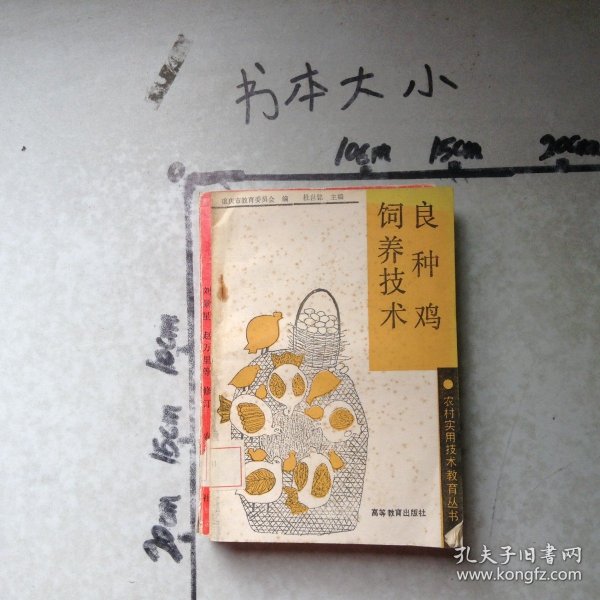 书本大小
10cm 15cm 20cm
重庆市教育委员会 编 杜世铭 主编
良种鸡
饲养技术
农村实用技术教育丛书
高等教育出版社
刘景星 赵万里等 修订
10cm
15cm
20cm
孔夫子旧书网
www.kongfz.com